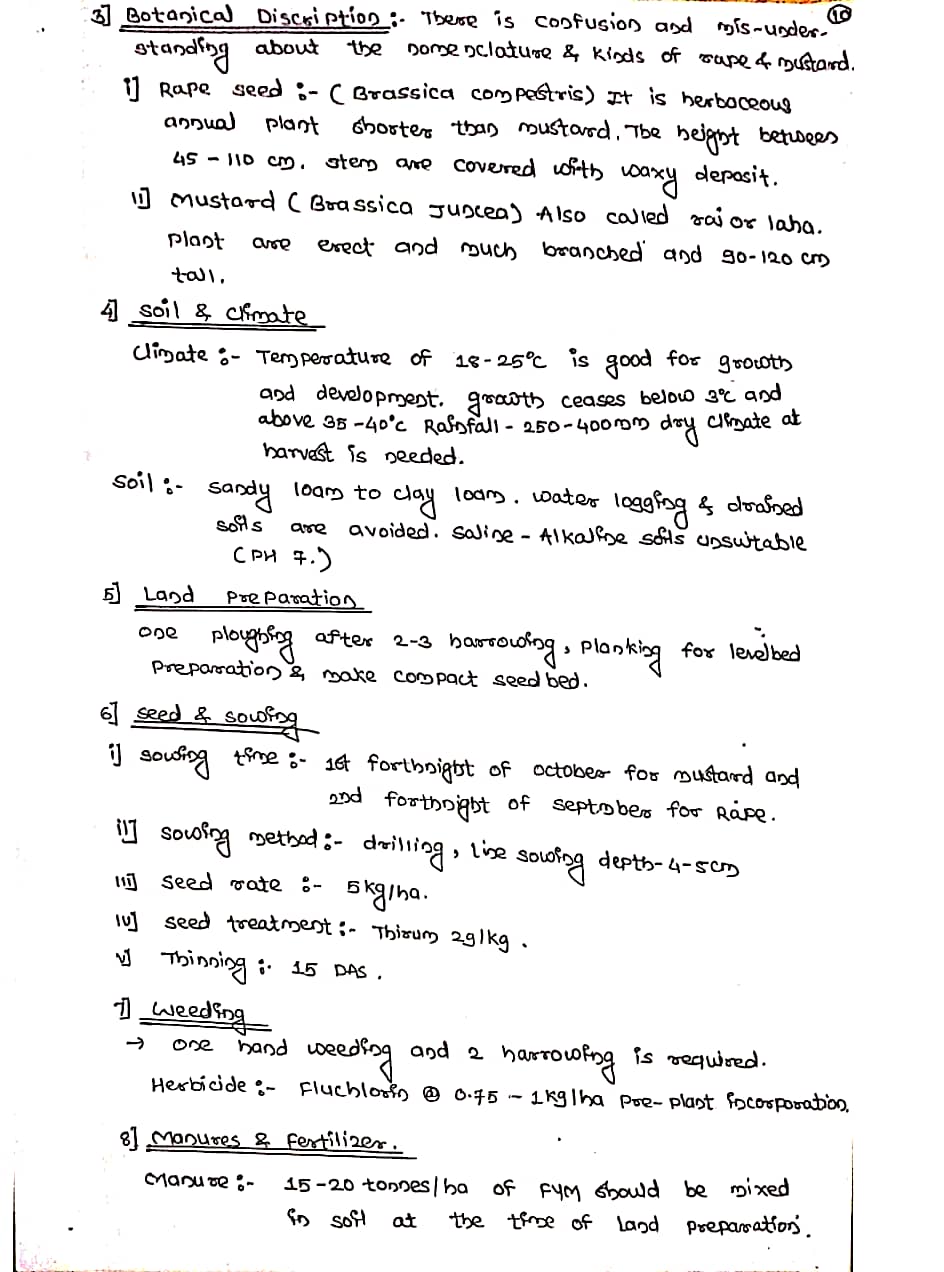 10
3] Botanical Discription :- There is confusion and mis-under-
standing about the nomenclature & kinds of rape & mustard.
i] Rape seed :- (Brassica compestris) It is herbaceous
annual plant shorter than mustard. The height between
45 - 110 cm. stem are covered with waxy deposit.
ii] Mustard (Brassica Juncea) Also called rai or laha.
plant are erect and much branched and 90-120 cm
tall.
4] soil & climate
climate :- Temperature of 18-25°c is good for growth
and development. growth ceases below 3°c and
above 35-40°c Rainfall - 250-400mm dry climate at
harvest is needed.
soil :- sandy loam to clay loam. water logging & drained
soils are avoided. saline - Alkaline soils unsuitable
(PH 7.)
5] Land preparation
one ploughing after 2-3 harrowing, planking for levelbed
preparation & make compact seed bed.
6] seed & sowing
i] sowing time :- 1st forthnight of october for mustard and
2nd forthnight of septmber for Rape.
ii] sowing method :- drilling, line sowing depth-4-5cm
iii] seed rate :- 5kg/ha.
iv] seed treatment :- Thirum 2g/kg.
v] Thinning :- 15 DAS.
7] weeding
→ one hand weeding and 2 harrowing is required.
Herbicide :- Fluchlorin @ 0.75 - 1kg/ha pre-plant incorporation.
8] Manures & fertilizer.
Manure :- 15-20 tonnes/ha of FYM should be mixed
in soil at the time of land preparation.